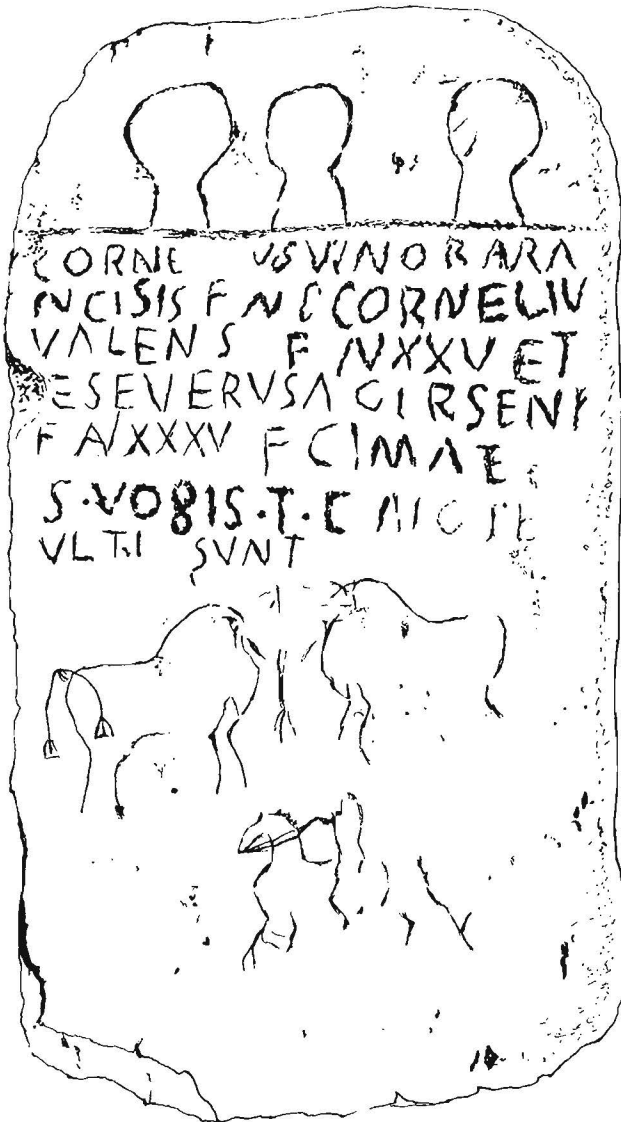 CORNE VS VINOR ARA
NCISIS F N CORNELIV
VALENS F N XXV ET
ESEVERVS AGIRSENI
F AN XXXV F CIMAE
S·VOBIS·T·E HIC SE
VLTI SVNT